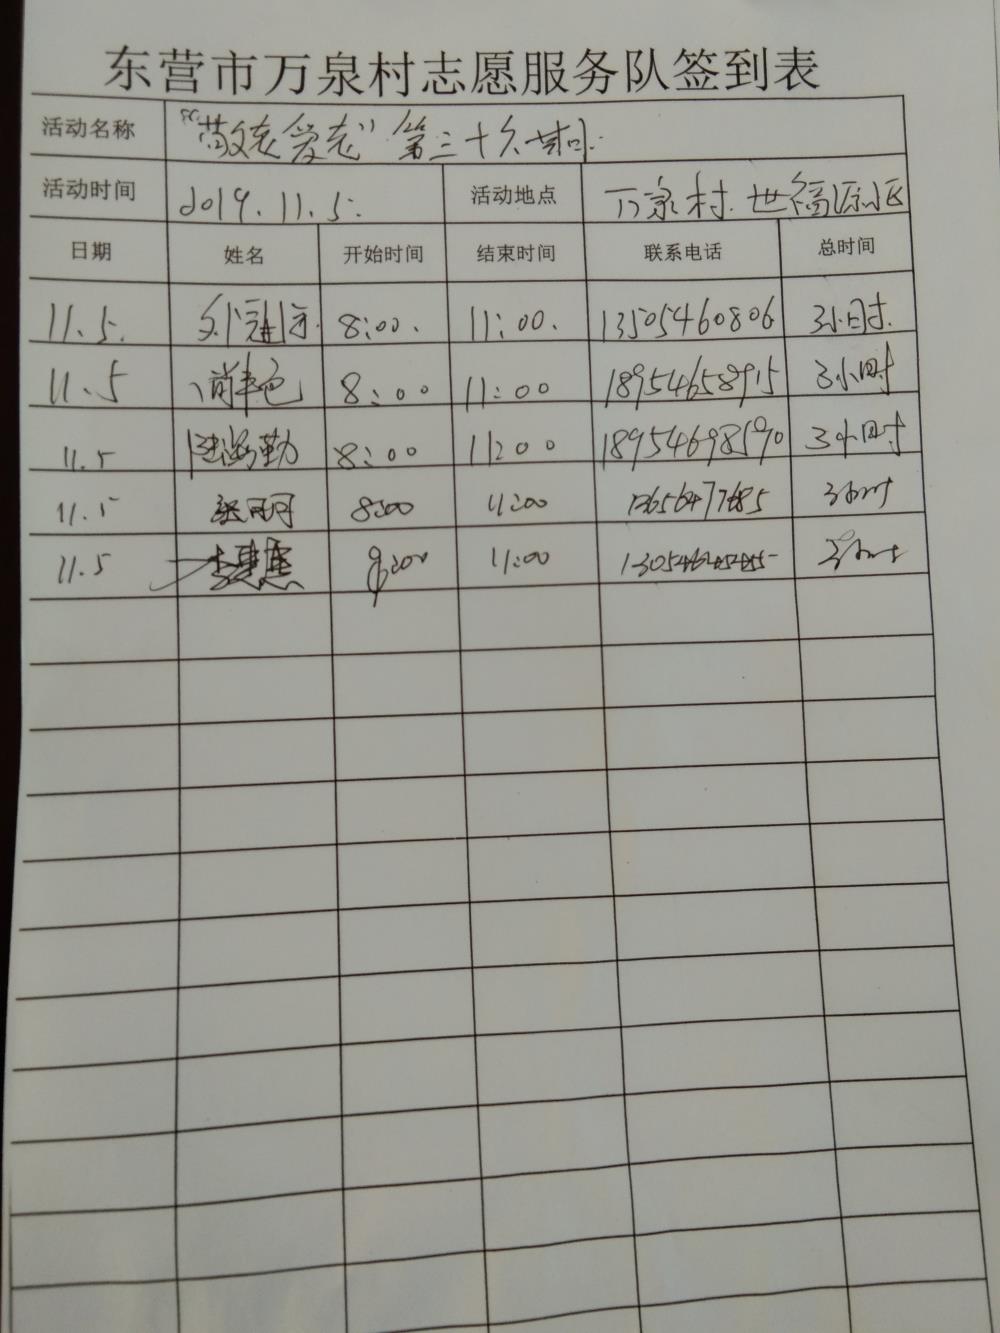 东营市万泉村志愿服务队签到表
活动名称 "敬老爱老"第三十六期
活动时间 2019.11.5. 活动地点 万泉村.世福源小区
日期 姓名 开始时间 结束时间 联系电话 总时间
11.5. 8:00. 11:00. 13505460806 3小时.
11.5 8:00 11:00 18954658915 3小时
11.5 8:00 11:00 18954698590 3小时
11.5 8:00 11:00 13656477685 3小时
11.5 8:00 11:00 3小时